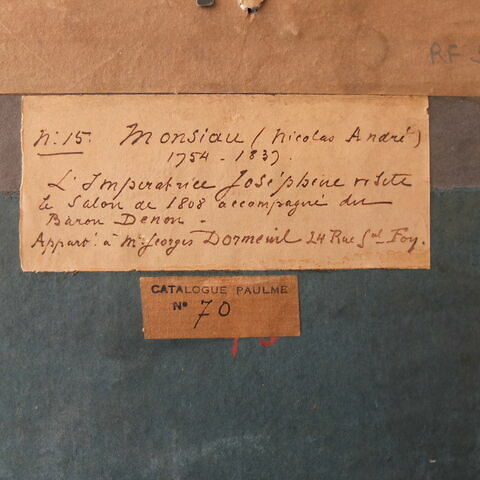 RF
N: 15. Monsiau (Nicolas André)
1754 - 1837.
L'Imperatrice Joséphine visite
le Salon de 1808 accompagné du
Baron Denon -
Appart: à Mr Georges Dormeuil 24 Rue Gal Foy.
CATALOGUE PAULME
No 70